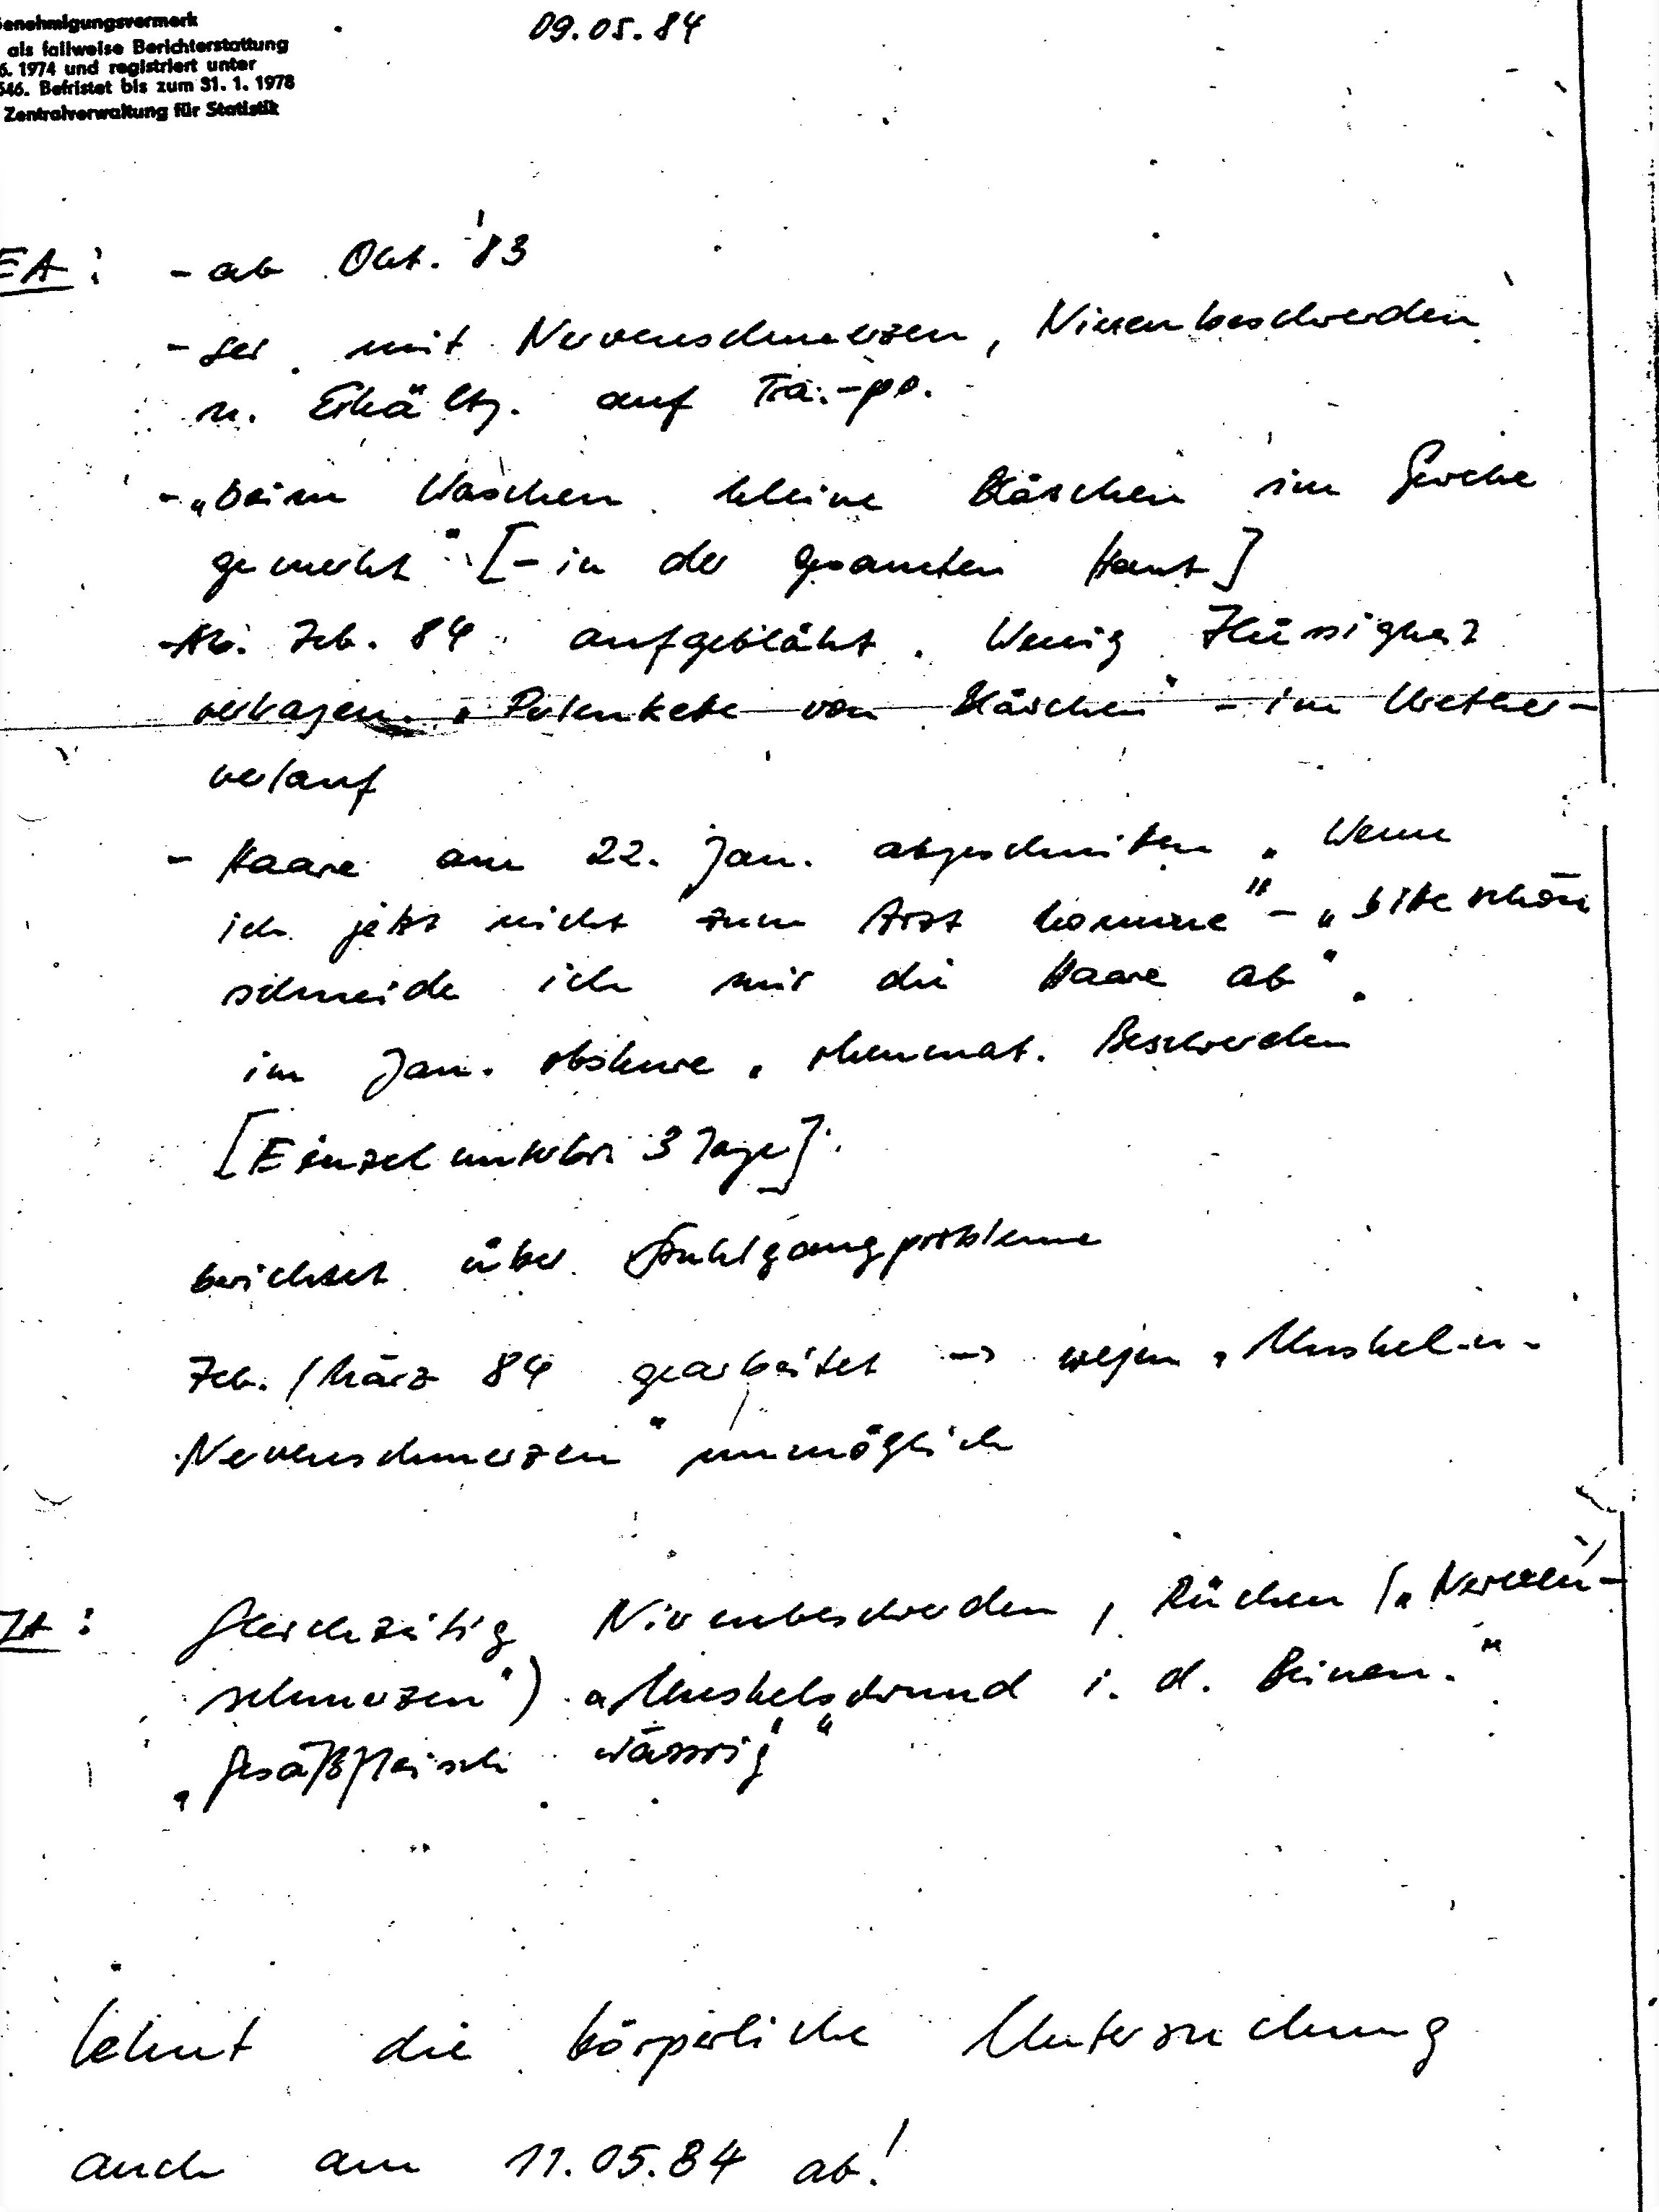 Genehmigungsvermerk
als fallweise Berichterstattung
6. 1974 und registriert unter
646. Befristet bis zum 31. 1. 1978
Zentralverwaltung für Statistik
09.05.84
EA: - ab Okt. '83
- mit Nervenschmerzen, Nierenbeschwerden
u. Erkältg. auf
- „beim Waschen kleine Bläschen im
gemerkt" [- in der gesamten Haut]
- Ab. Feb. 84 aufgebläht. Wenig Flüssigkeit
vertragen. „Perlenkette von Bläschen" - im Urether-
verlauf
- Haare am 22. Jan. abgeschnitten „Wenn
ich jetzt nicht zum Arzt komme" - „bitte schön
schneide ich mir die Haare ab".
im Jan. obskure „rheumat. Beschwerden
[Einzelunterbr. 3 Tage].
berichtet über Stuhlgangprobleme
Feb. / März 84 gearbeitet → wegen „Muskel- u.
Nervenschmerzen" unmöglich
JA: Gleichzeitig Nierenbeschwerden, Rücken („Nerven-
schmerzen") „Muskelschwund i. d. Beinen."
„Gesäßfleisch wässrig"
lehnt die körperliche Untersuchung
auch am 11.05.84 ab!